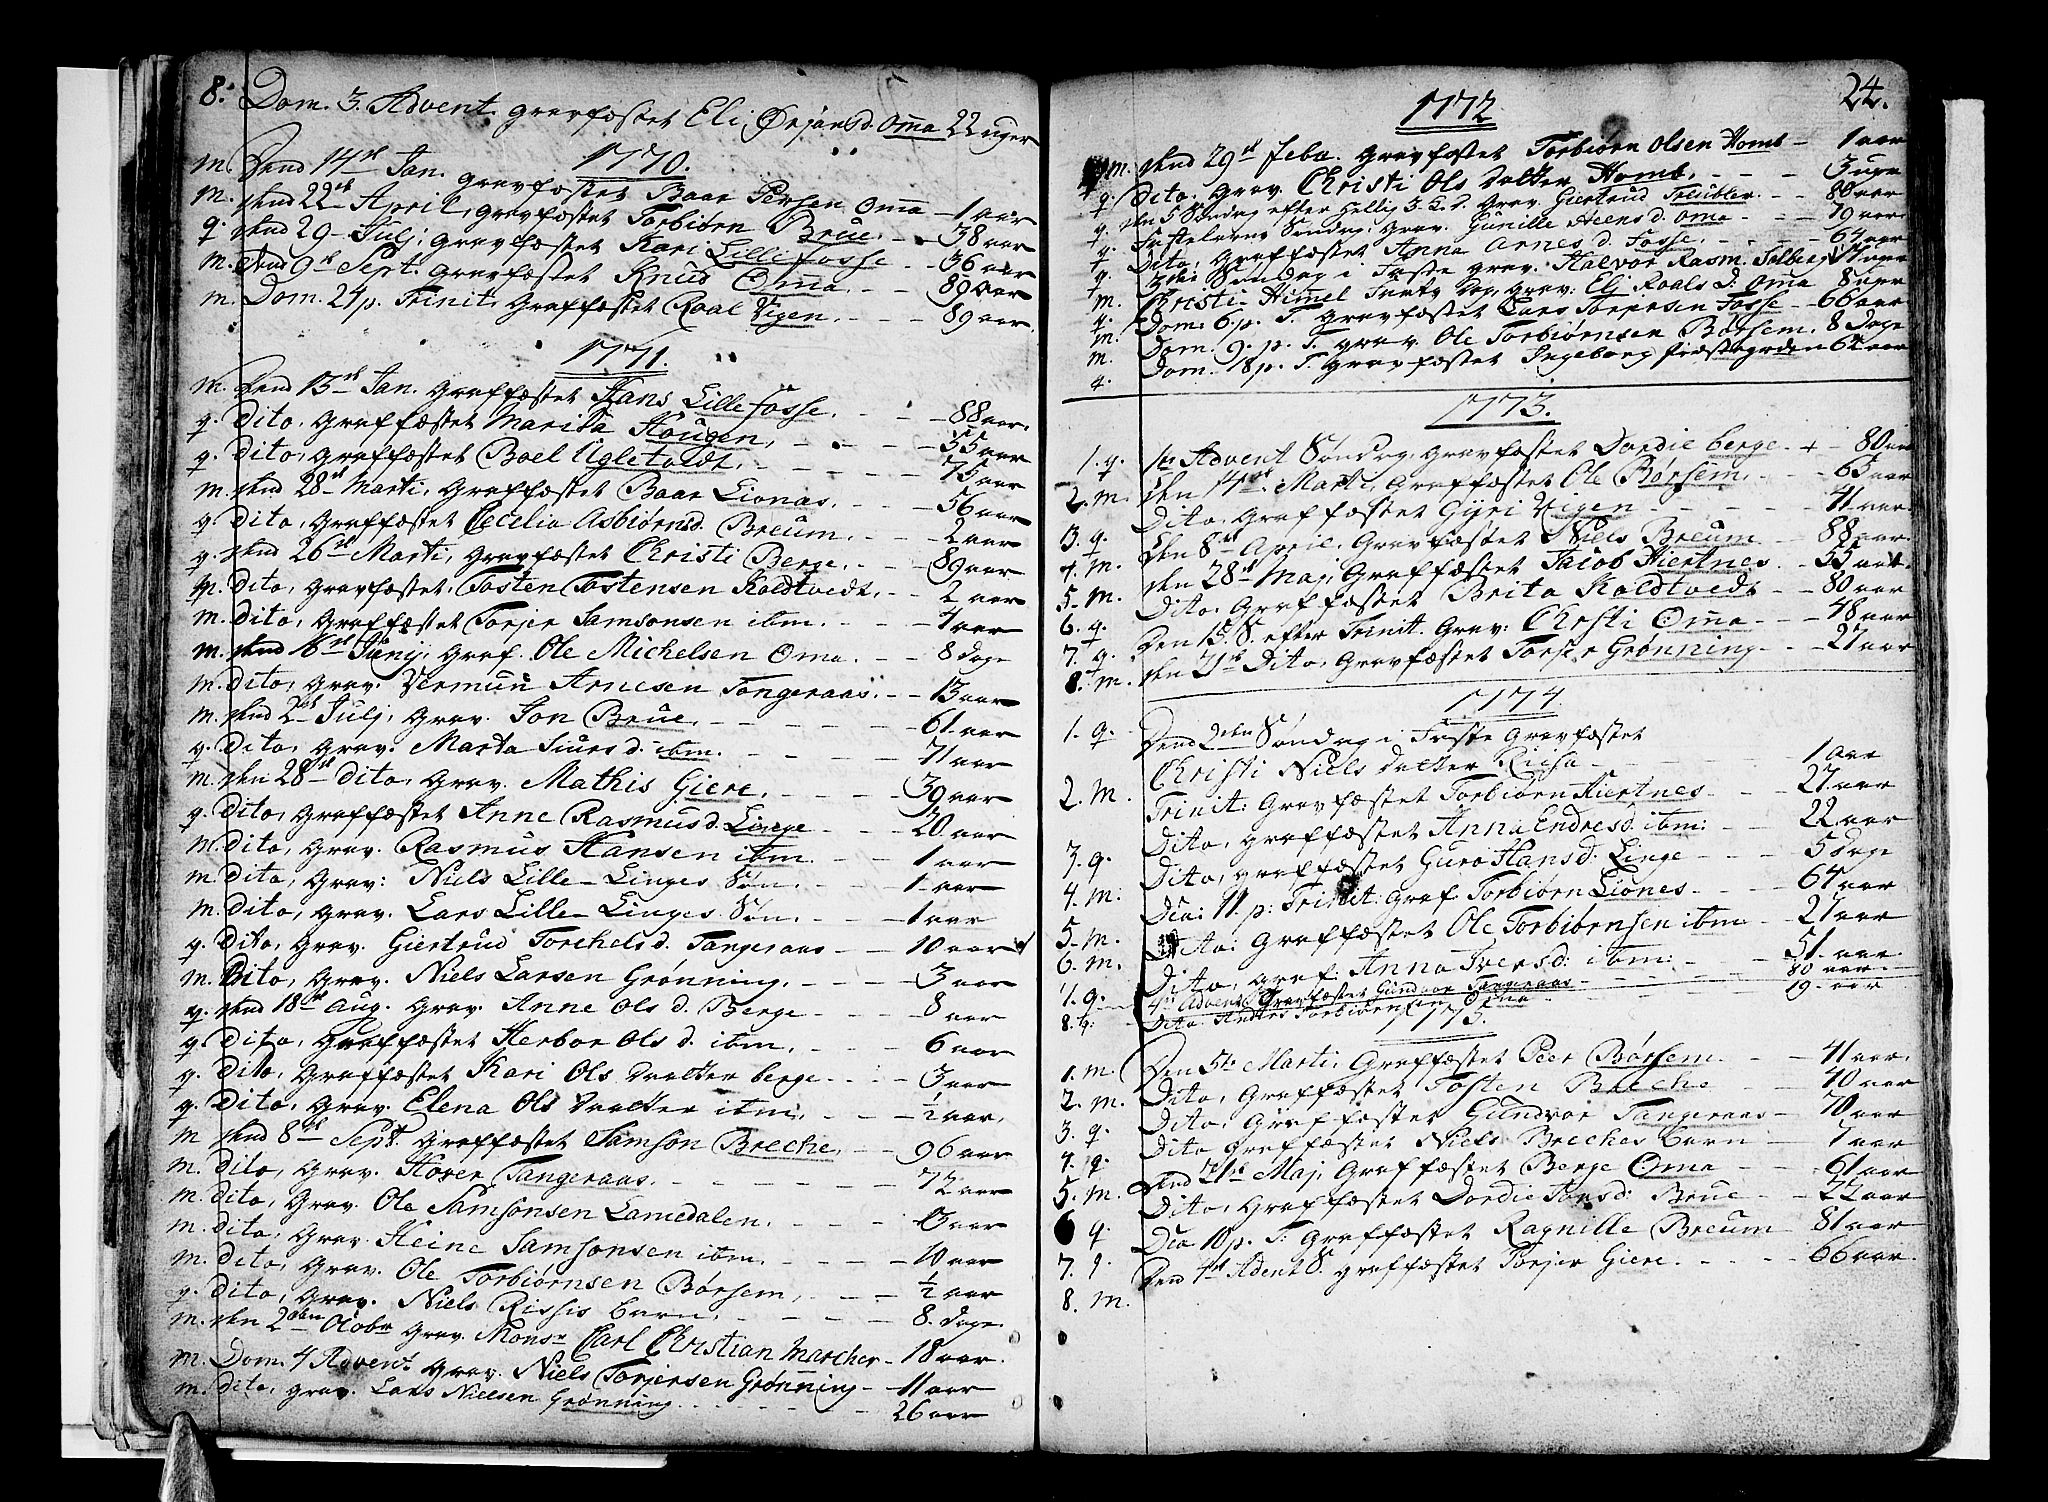 8. Dom. 3. Advent gravfæstet Eli Ørjansd. Oma 22 uger
1770.
m. Dend 14de Jan. gravfæstet Baar Persen Oma 1 aar
m. dend 22de April, gravfæstet Torbiørn Brue 38 aar
q. dend 29 Julj, gravfæstet Kari Lille fosse 36 aar
m. dend 9de Sept. gravfæstet Knud Oma 89 aar
m. Dom. 24 p. Trinit. Graffæstet Roal Vigen 89 aar
1771.
m. dend 13de Jan. Graffæstet Hans Lille fosse 88 aar
q. dito, Graffæstet Marita Hougen 55 aar
q. dito, Graffæstet Boel Ugletvedt 75 aar
m. dend 28de Marti, Graffæstet Baar Lionas 56 aar
q. dito, Graffæstet Cecelia Asbiørnsd. Breum 2 aar
q. dend 26de Marti, Gravfæstet Christi Berge 89 aar
m. dito, Gravfæstet Tosten Tostensen Koldtvedt 2 aar
m. dito, Graffæstet Torjer Samsonsen ibm. 4 aar
m. dend 16de Junij, Graf. Ole Michelsen Oma 8 dage
m. dito, Grav. Vermun Arnesen Tangeraas 13 aar
m. dend 2de Julj, Grav. Jon Brue 61 aar
q. dito, Grav. Marta Siursd. ibm. 71 aar
m. den 28de dito, Grav. Mathis Giere 39 aar
q. dito, Graffæstet Anne Rasmusd. Linge 20 aar
m. dito, Grav. Rasmus Hansen ibm 1 aar
m. dito, Grav: Niels Lille-Linges Søn 1 aar
m. dito, Grav. Lars Lille-Linges Søn 1 aar
q. dito, Grav. Giertrud Torchelsd. Tangeraas 10 aar
m. Dito, Grav. Niels Larsen Grønning 3 aar
q. dend 18de Aug. Grav. Anne Olsd. Berge 8 aar
q. dito, Graffæstet Herbor Olsd. ibm. 6 aar
q. dito, Graffæstet Kari Ols datter berge 3 aar
q. dito, Grav. Elena Ols datter ibm. ½ aar.
m dend 8de Sept. Graffæstet Samson Breche 96 aar
m. dito, Grav. Hover Tangeraas 72 aar
m. dito, Grav. Ole Samsonsen Lanedalen 13 aar
m. dito, Grav. Heine Samsonsen ibm. 10 aar
m. dito, Grav. Ole Torbiørnsen Børsem ½ aar
q. dito, Grav. Niels Rissis barn 8. dage
m. den 2den Octobr Grav. Monsr Carl Christian Marcher 18 aar.
m. Dom. 4 Advent Grav. Niels Torjersen Grønning 11 aar
m. dito, grav. Lars Nielsen Grønning 26 aar
24.
1772.
m. dend 29de Febr. Gravfæstet Torbiørn Olsen Homb 1 aar
q. Dito, Grav. Christi Ols datter Homb 3 uger
q. den 5 Søndag efter Hellig 3 K. d. Grav. Giertrud 80 aar
q. Fastelavns Søndag, Grav. Gunille Heensd. Oma 79 aar
q. Dito, Graffæstet Anna Arnesd. Fosse 64 aar
m. Søndag i Faste Grav. Halvor Rasm.
q. Christi Himmel farts dag, Grav: Eli Roalsd. Oma 8 uger
m. Dom. 6. p. T. Gravfæstet Lars Torjersen Fosse 66 aar
m. Dom. 9. p. T. Grav. Ole Torbiørnsen Børsem. 8 dage
q. Dom. 18 p. T. Gravfæstet Ingeborg Præstegrden 64 aar
1773.
1. q. 1te Advent Søndag, Gravfæstet Dordie berge + 80 aar
2. m. den 14de Marti, Graffæstet Ole Børsem 65 aar
3. q. Dito, Graffæstet Gyri Vigen 41 aar
4. m. den 8de April, Gravfæstet Niels Breum 88 aar
5. m. den 28de Maj, Graffæstet Jacob Hiertnes 55 aar
6. q. Dito, Graffæstet Brita Koldtvedt 80 aar
7. q. Den 15 S. efter Trinit. Grav: Christi Oma 48 aar
8. m. den 21de Dito, Gravfæstet Torjer Grønning 27 aar
1774.
1. q. Dend 2den Søndag i Faste Gravfæstet
Christi Niels datter Riisa 1 aar
2. m. Trinit: Gravfæstet Torbiørn Hiertnes 27 aar
3. q. Dito, Graffæstet Anna Endresd. ibm: 22 aar
4. m. Dito, Graffæstet Guro Hansd. Linge 5 dage
5. m. Dca: 11 p: Trinit: Graf Torbiørn Lionæs 64 aar
6. m. Dito: Graffæstet Ole Torbiørnsen ibm 27 aar
7. q. Dito, Graf: Anna Iversd: ibm: 51 aar
4de Advent Gravfæstet Gundvor Tangeraas 80 aar
8. q. Dito Andres Torbiørnsen Oma 19 aar
1775.
1. m. Den 5te Marti, Graffæstet Peer Børsem 41 aar.
2. m. Dito, Graffæstet Tosten Breche 40 aar
3. q. Dito, Graffæstet Gundvor Tangeraas 70 aar
4. q. Dito Graffæstet Niels Breches barn 7 aar
5. m. dend 21de Maj, Graffæstet Berge Oma 61 aar
6 q Dito, Graffæstet Dordie Jonsd: Brue 22 aar
7. q. Dca 10 p. T. Graffæstet Ragnille Breum 81 aar
8. m. Den 4de Adent S. Graffæstet Torjer Giere 66 aar.